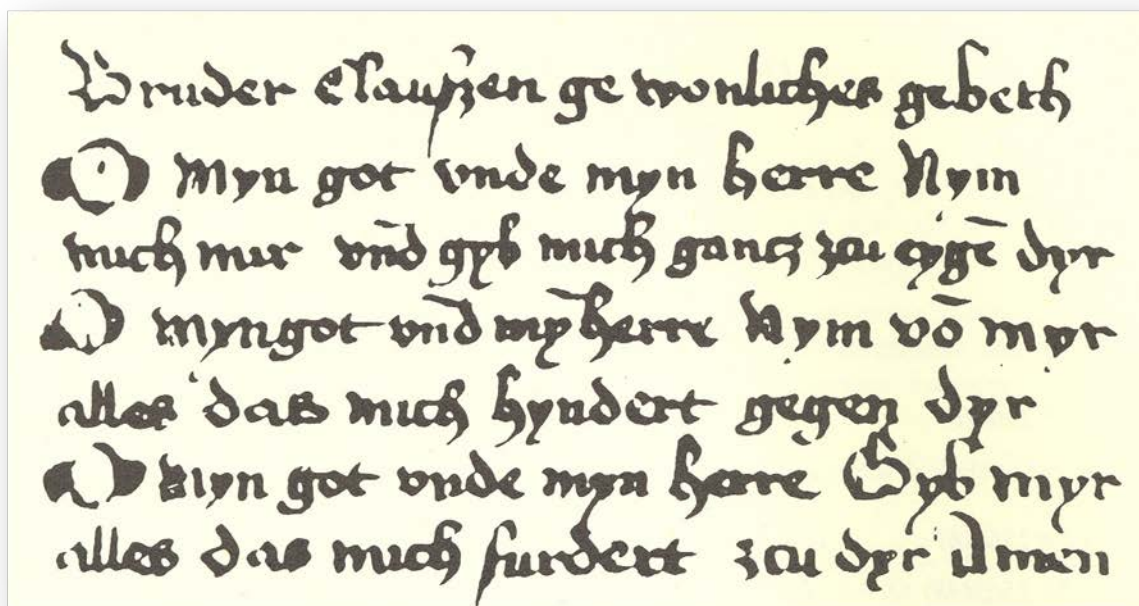 Bruder Claußen ge wonliches gebeth
O Myn got vnde myn herre Nym
mich mir vnd̄ gyb mich gantz zcu eygē dyr
O myngot vnd̄ mȳ herre Nym vō myr
alles das mich hyndert gegen dyr
O Myn got vnde myn herre Gyb myr
alles das mich furdert zcu dyr Amen